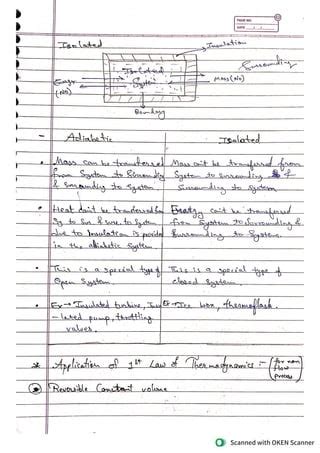 PAGE NO:
DATE:
Isolated
Insulation
Surrounding
Isolated
System
Energy
(No)
Mass (No)
Boundary
- Adiabatic Isolated
• Mass can be transferred Mass can't be transferred from
from System to Surrounding System to surrounding &
& Surrounding to System Surrounding to system
• Heat can't be transferred from Energy can't be transferred
Sy to Sur & Sur to System from System to Surrounding &
due to Insulation is provided Surrounding to System.
in the adiabatic system
• This is a special type of This is a special type of
Open System. closed System.
• Ex → Insulated turbine, Insu Ex → Ice box, thermoflask.
- lated pump, throttling
valves.
* Application of 1st Law of Thermodynamics :- (for non
flow
process)
Reversible Constant volume
Scanned with OKEN Scanner